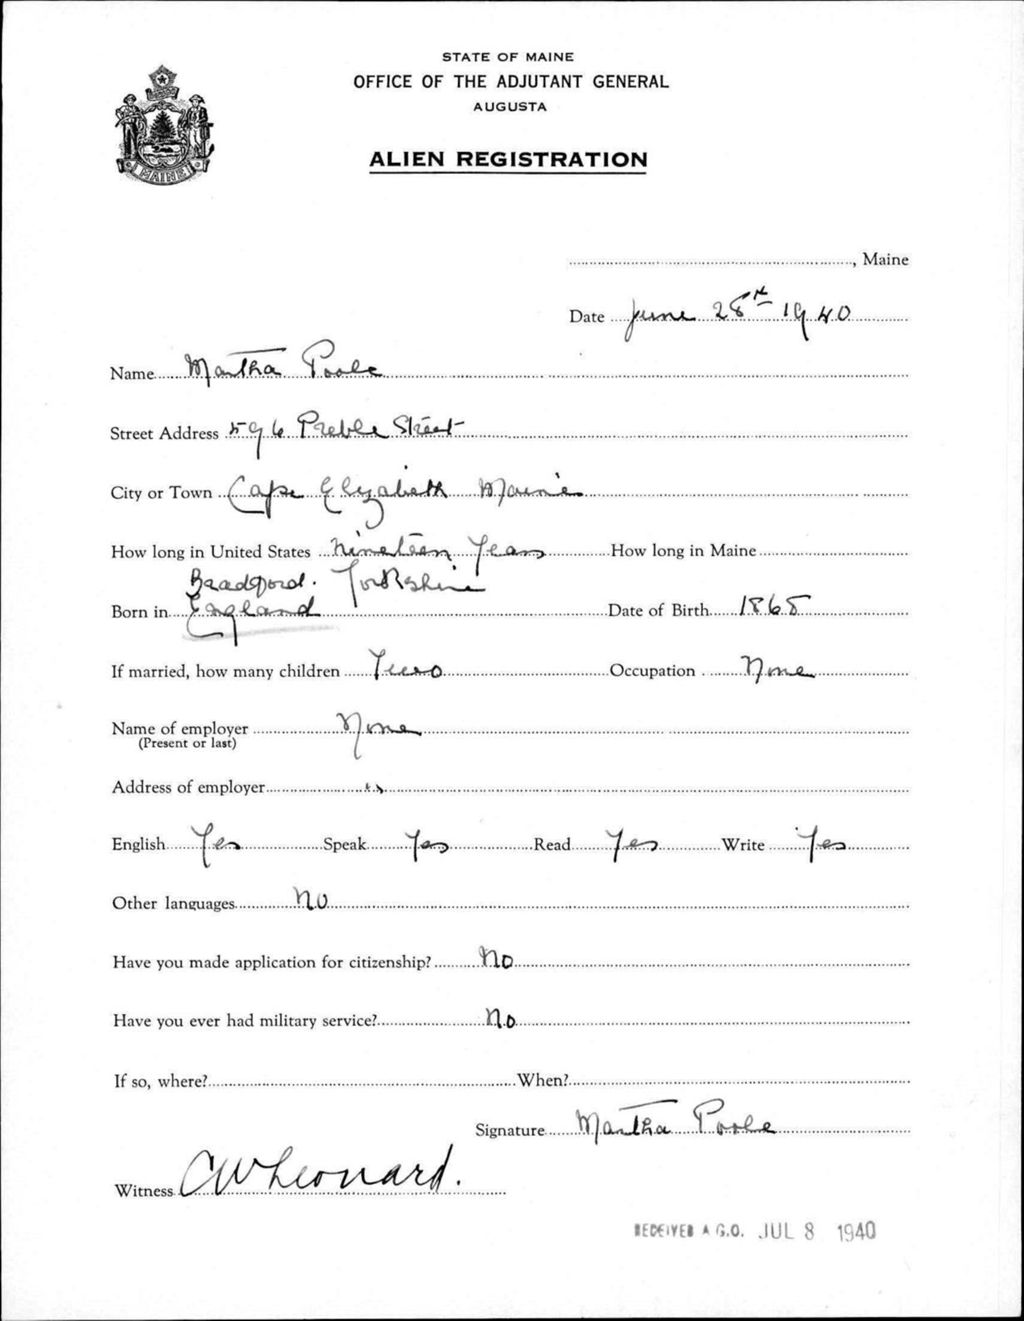 STATE OF MAINE
OFFICE OF THE ADJUTANT GENERAL
AUGUSTA
ALIEN REGISTRATION
MAINE
, Maine
Date June 28th 1940
Name Martha Poole
Street Address 596 Preble Street
City or Town Cape Elizabeth Maine
How long in United States Nineteen Years How long in Maine
Bradford. Yorkshire
Born in England Date of Birth 1865
If married, how many children Two Occupation None
Name of employer None
(Present or last)
Address of employer "
English Yes Speak Yes Read Yes Write Yes
Other languages No
Have you made application for citizenship? No
Have you ever had military service? No
If so, where? When?
Signature Martha Poole
Witness CW Leonard.
RECEIVED A.G.O. JUL 8 1940